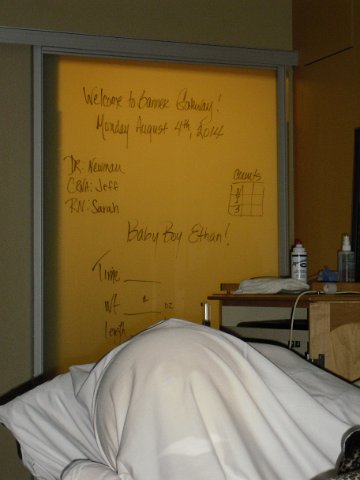 Welcome to Banner Gateway!
Monday August 4th, 2014
DR. Newman
CRNA: Jeff
RN: Sarah
Counts
Baby Boy Ethan!
Time
wt # oz
length